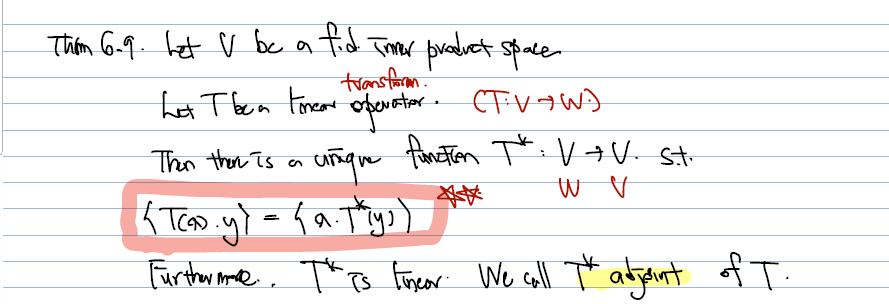 Thm 6.9. Let V be a f.d inner product space
transform.
Let T be a linear operator. (T: V → W.)
Then there is a unique function T* : V → V. s.t.
W V
⟨T(x). y⟩ = ⟨x. T*(y)⟩ ☆☆
Furthermore., T* is linear. We call T* adjoint of T.